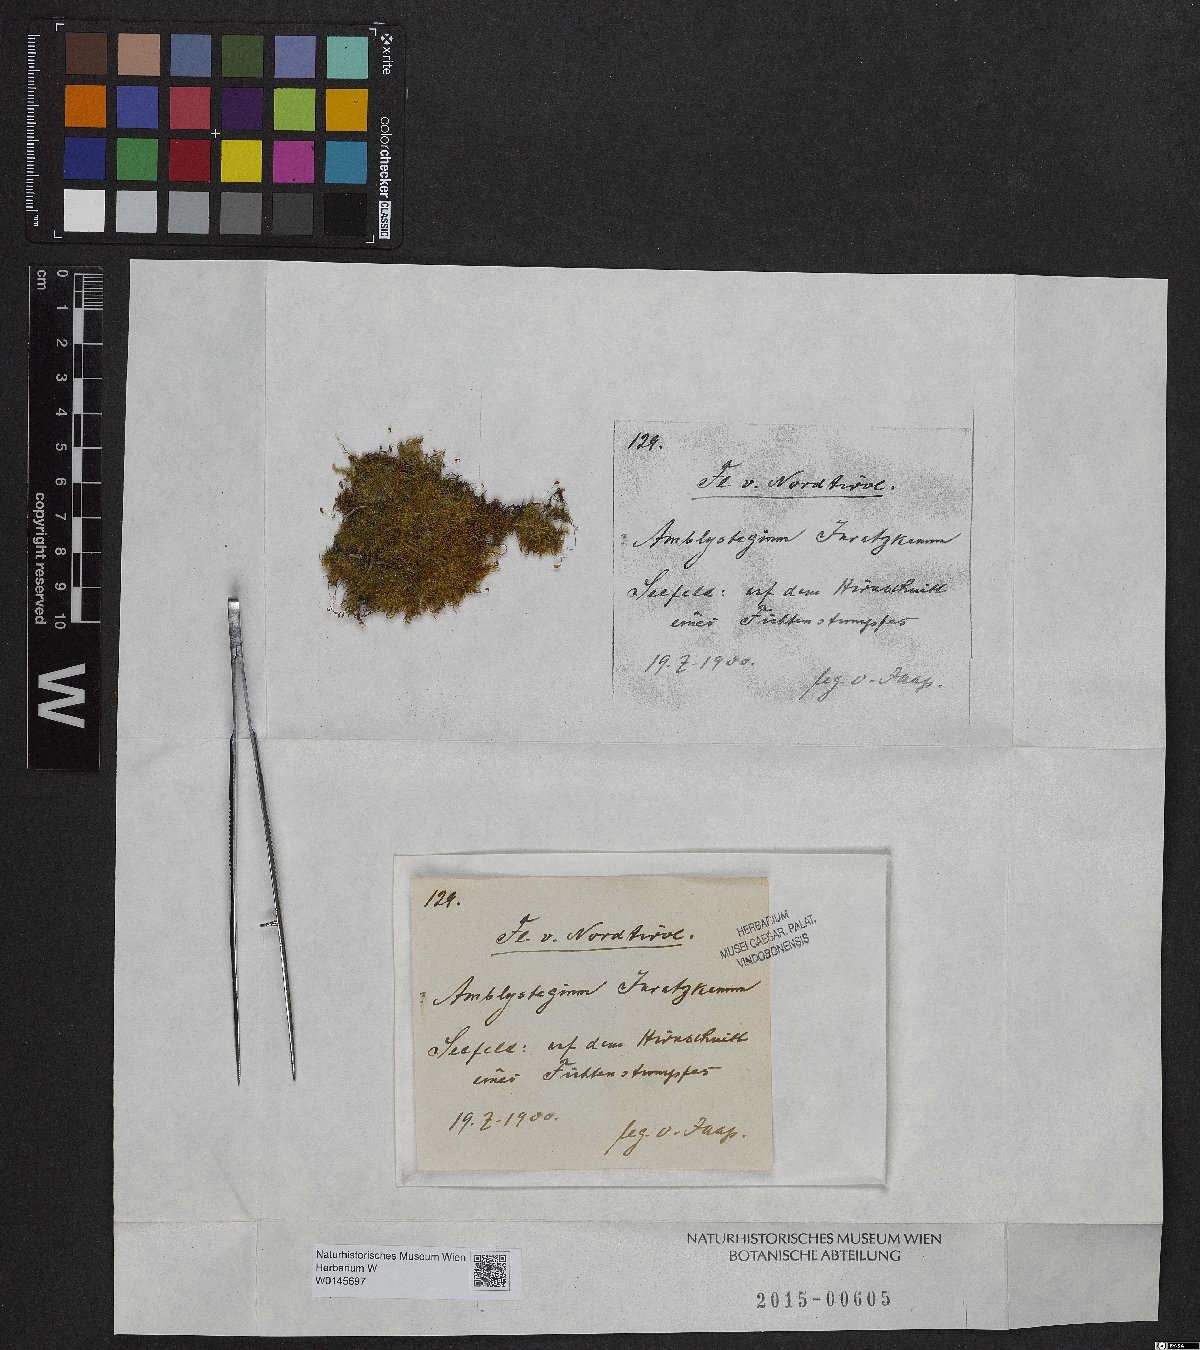 x-rite
colorchecker CLASSIC
mm
0 1 2 3 4 5 6 7 8 9 10
cm
copyright reserved
W
129.
Fl. v. Nordtirol.
Amblystegium Juratzkanum
Seefeld: auf dem Hirnschnitt
eines Fichtenstumpfes
19.7.1900.
leg. O. Jaap.
129.
Fl. v. Nordtirol.
HERBARIUM
MUSEI CAESAR. PALAT.
VINDOBONENSIS
Amblystegium Juratzkanum
Seefeld: auf dem Hirnschnitt
eines Fichtenstumpfes
19.7.1900.
leg. O. Jaap.
Naturhistorisches Museum Wien
Herbarium W
W0145697
NATURHISTORISCHES MUSEUM WIEN
BOTANISCHE ABTEILUNG
2015-00605
BY-SA